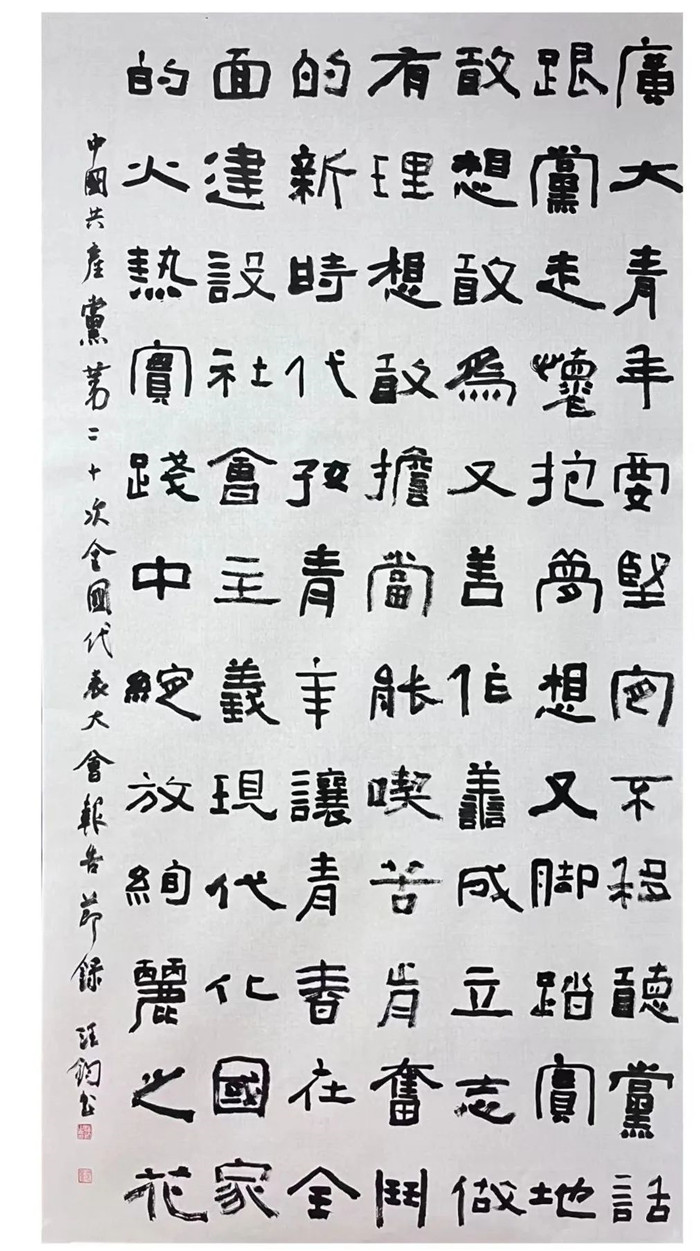 廣大青年要堅定不移聽黨話
跟黨走懷抱夢想又脚踏實地
敢想敢為又善作善成立志做
有理想敢擔當能喫苦肯奮鬥
的新時代好青年讓青春在全
面建設社會主義現代化國家
的火熱實踐中綻放絢麗之花
中國共產黨第二十次全國代表大會報告節錄 汪鈞書